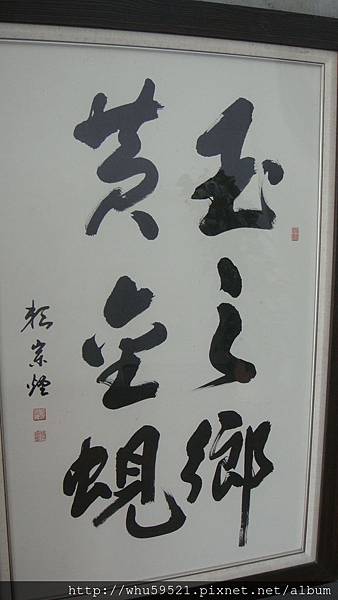 玉之鄉
黃金蜆
賴崇燈
http://whu59521.pixnet.net/album